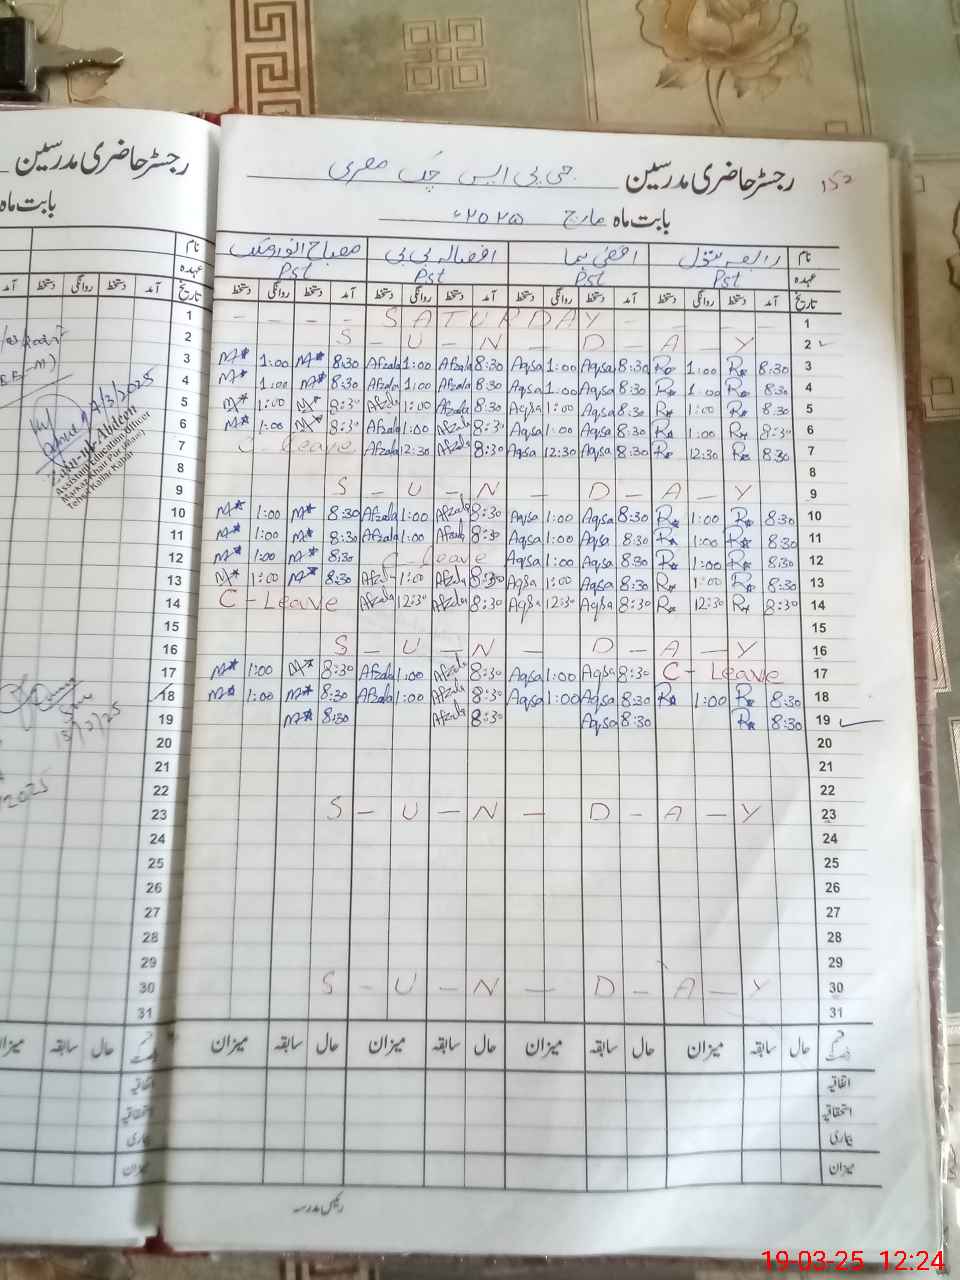 رجسٹر حاضری مدرسین
جی پی ایس چک مصری
رجسٹر حاضری مدرسین
152
بابت ماہ
بابت ماہ مارچ ۲۰۲۵ء
نام مصباح افضالہ بی بی اقصیٰ رابعہ بتول نام
عہدہ Pst Pst Pst Pst عہدہ
آمد دستخط روانگی دستخط آمد تاریخ دستخط روانگی دستخط آمد دستخط روانگی دستخط آمد دستخط روانگی دستخط آمد دستخط روانگی دستخط آمد تاریخ
1 - - - - S A T U R D A Y - - - 1
2 S - U - N - D - A - Y 2
3 M* 1:00 M* 8:30 Afzala 1:00 Afzala 8:30 Aqsa 1:00 Aqsa 8:30 R* 1:00 R* 8:30 3
4 M* 1:00 M* 8:30 Afzala 1:00 Afzala 8:30 Aqsa 1:00 Aqsa 8:30 R* 1:00 R* 8:30 4
5 M* 1:00 M* 8:30 Afzala 1:00 Afzala 8:30 Aqsa 1:00 Aqsa 8:30 R* 1:00 R* 8:30 5
6 M* 1:00 M* 8:30 Afzala 1:00 Afzala 8:30 Aqsa 1:00 Aqsa 8:30 R* 1:00 R* 8:30 6
7 Leave Afzala 12:30 Afzala 8:30 Aqsa 12:30 Aqsa 8:30 R* 12:30 R* 8:30 7
8 8
9 S - U - N - D - A - Y 9
10 M* 1:00 M* 8:30 Afzala 1:00 Afzala 8:30 Aqsa 1:00 Aqsa 8:30 R* 1:00 R* 8:30 10
11 M* 1:00 M* 8:30 Afzala 1:00 Afzala 8:30 Aqsa 1:00 Aqsa 8:30 R* 1:00 R* 8:30 11
12 M* 1:00 M* 8:30 C - Leave Aqsa 1:00 Aqsa 8:30 R* 1:00 R* 8:30 12
13 M* 1:00 M* 8:30 Afzala 1:00 Afzala 8:30 Aqsa 1:00 Aqsa 8:30 R* 1:00 R* 8:30 13
14 C - Leave Afzala 12:30 Afzala 8:30 Aqsa 12:30 Aqsa 8:30 R* 12:30 R* 8:30 14
15 15
16 S - U - N - D - A - Y 16
17 M* 1:00 M* 8:30 Afzala 1:00 Afzala 8:30 Aqsa 1:00 Aqsa 8:30 C - Leave 17
18 M* 1:00 M* 8:30 Afzala 1:00 Afzala 8:30 Aqsa 1:00 Aqsa 8:30 R* 1:00 R* 8:30 18
19 M* 8:30 Afzala 8:30 Aqsa 8:30 R* 8:30 19
20 20
21 21
22 22
23 S - U - N - D - A - Y 23
24 24
25 25
26 26
27 27
28 28
29 29
30 S - U - N - D - A - Y 30
31 31
میزان سابقہ حال میزان سابقہ حال میزان سابقہ حال میزان سابقہ حال میزان سابقہ حال
اتفاقیہ اتفاقیہ
استحقاقیہ استحقاقیہ
بیماری بیماری
میزان میزان
رئیس مدرسہ
7/3/2025
Zain-ul-Abideen
Assistant Education Officer
13/3/25
/2025
19-03-25 12:24